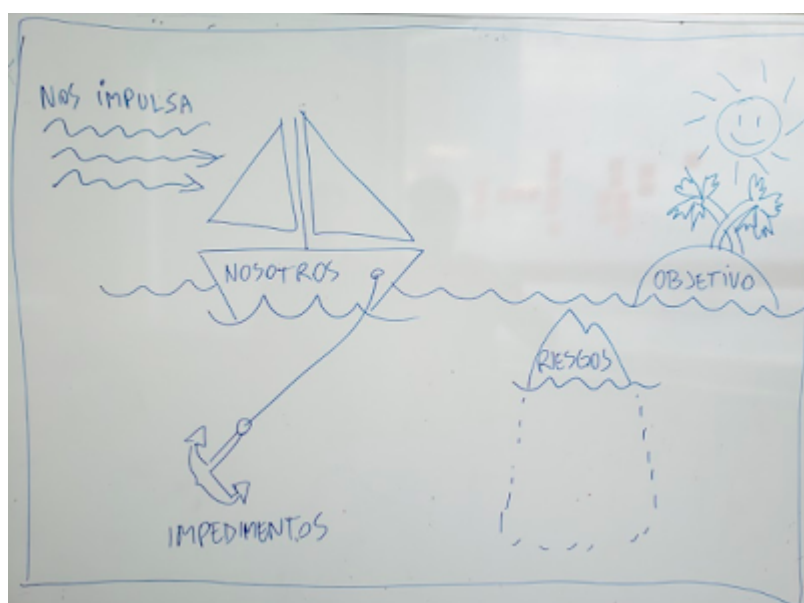 NOS IMPULSA
NOSOTROS
OBJETIVO
RIESGOS
IMPEDIMENTOS